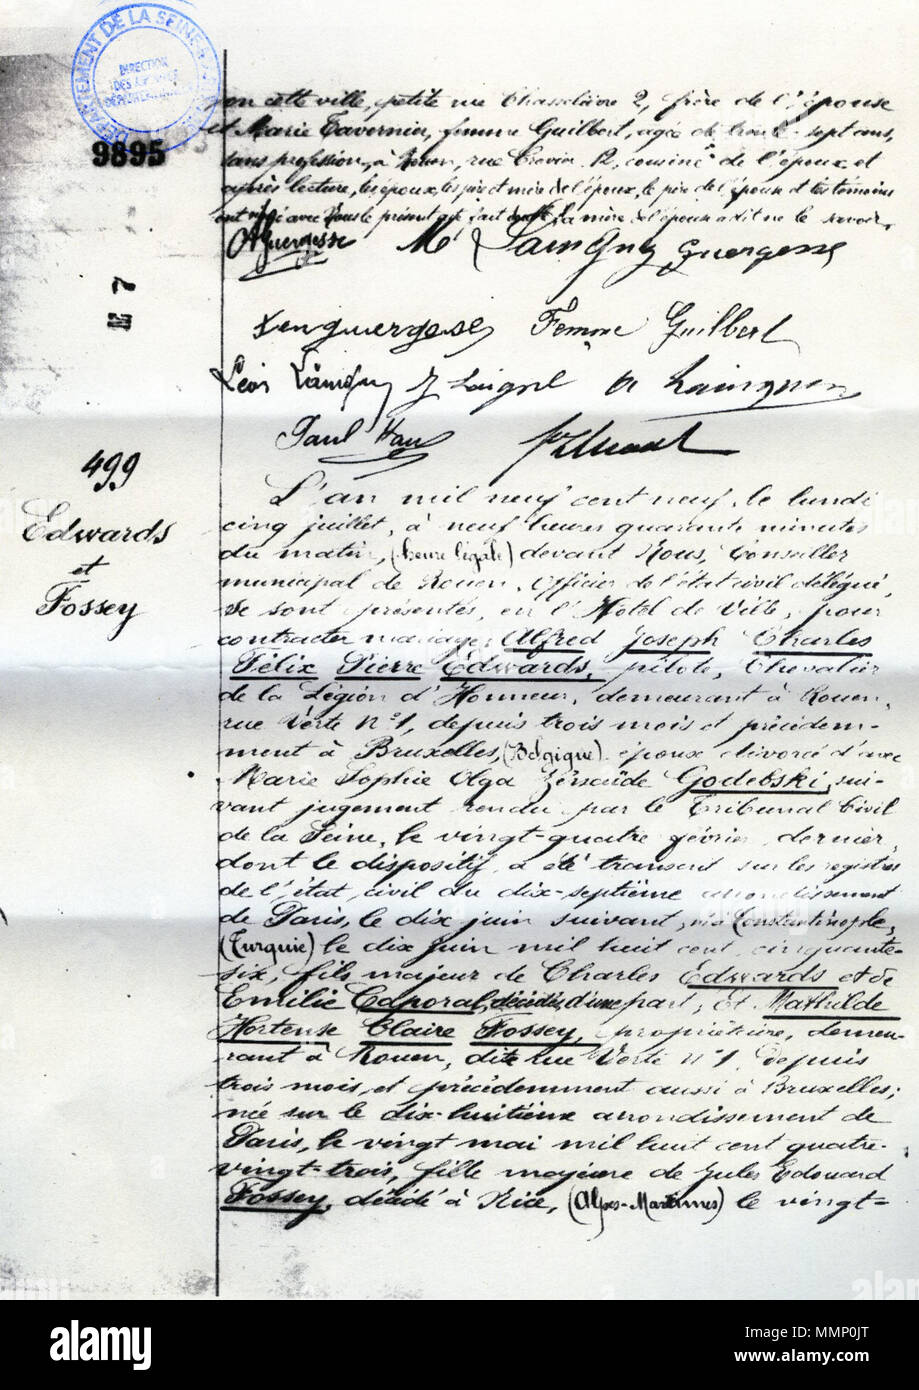 DÉPARTEMENT DE LA SEINE
DIRECTION
9895
N 7
en cette ville, petite rue Chasselièvre 2, frère de l'épouse
et Marie Tavernier, femme Guilbert, agée de trente-sept ans,
sans profession, à Rouen, rue Crevier 12, cousine de l'époux, et
après lecture, les époux, les père et mère de l'époux, le père de l'épouse et les témoins
ont signé avec Nous le présent acte, la mère de l'épouse a dit ne le savoir.
Guergesse
Guergesse
Femme Guilbert
Léon
Paul
499
Edwards
et
Fossey
L'an mil neuf cent neuf, le lundi
cinq juillet, à neuf heures quarante minutes
du matin, (heure légale) devant Nous, Conseiller
municipal de Rouen, Officier de l'état civil délégué,
se sont présentés, en l'Hôtel de Ville, pour
contracter mariage, Alfred Joseph Charles
Félix Pierre Edwards, pilote, Chevalier
de la Légion d'Honneur, demeurant à Rouen,
rue Verte N° 1, depuis trois mois et précédem-
ment à Bruxelles, (Belgique) époux divorcé d'avec
Marie Sophie Olga Zénaïde Godebski, sui-
vant jugement rendu par le Tribunal Civil
de la Seine, le vingt-quatre février dernier,
dont le dispositif a été transcrit sur les registres
de l'état civil du dix-septième arrondissement
de Paris, le dix juin suivant, né à Constantinople,
(Turquie) le dix juin mil huit cent cinquante-
six, fils majeur de Charles Edwards et de
Emilie Caporal, décédés, d'une part; Et Mathilde
Hortense Claire Fossey, propriétaire, demeu-
rant à Rouen, dite rue Verte N° 1, depuis
trois mois, et précédemment aussi à Bruxelles;
née sur le dix-huitième arrondissement de
Paris, le vingt mai mil huit cent quatre-
vingt-trois, fille majeure de Jules Edouard
Fossey, décédé à Nice, (Alpes-Maritimes) le vingt-
alamy
Image ID: MMP0JT
www.alamy.com